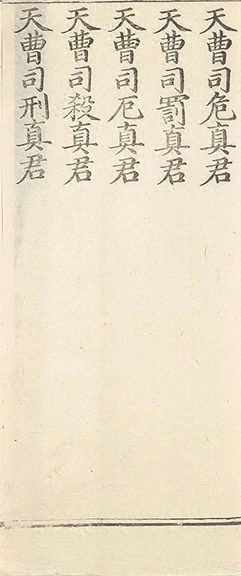 天曹司危真君
天曹司罰真君
天曹司厄真君
天曹司殺真君
天曹司刑真君